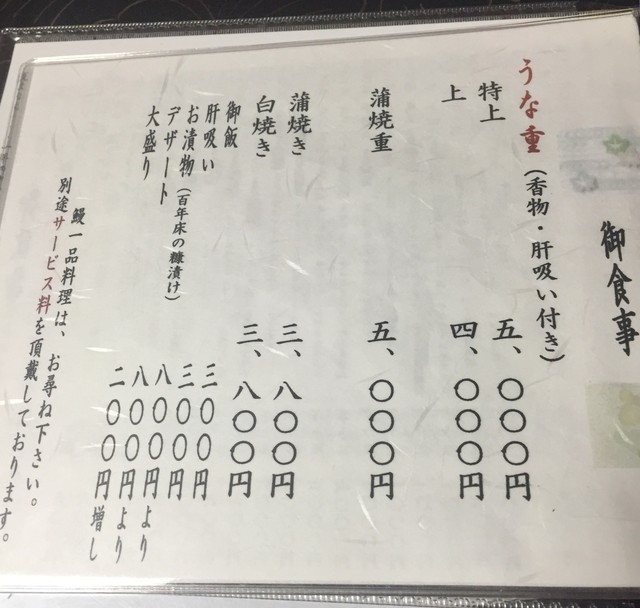 御食事
うな重(香物・肝吸い付き)
特上 五、〇〇〇円
上 四、〇〇〇円
蒲焼重 五、〇〇〇円
蒲焼き 三、八〇〇円
白焼き 三、八〇〇円
御飯 三〇〇円
肝吸い 三〇〇円
お漬物(百年床の糠漬け) 八〇〇円より
デザート 八〇〇円より
大盛り 二〇〇円増し
鰻一品料理は、お尋ね下さい。
別途サービス料を頂戴しております。